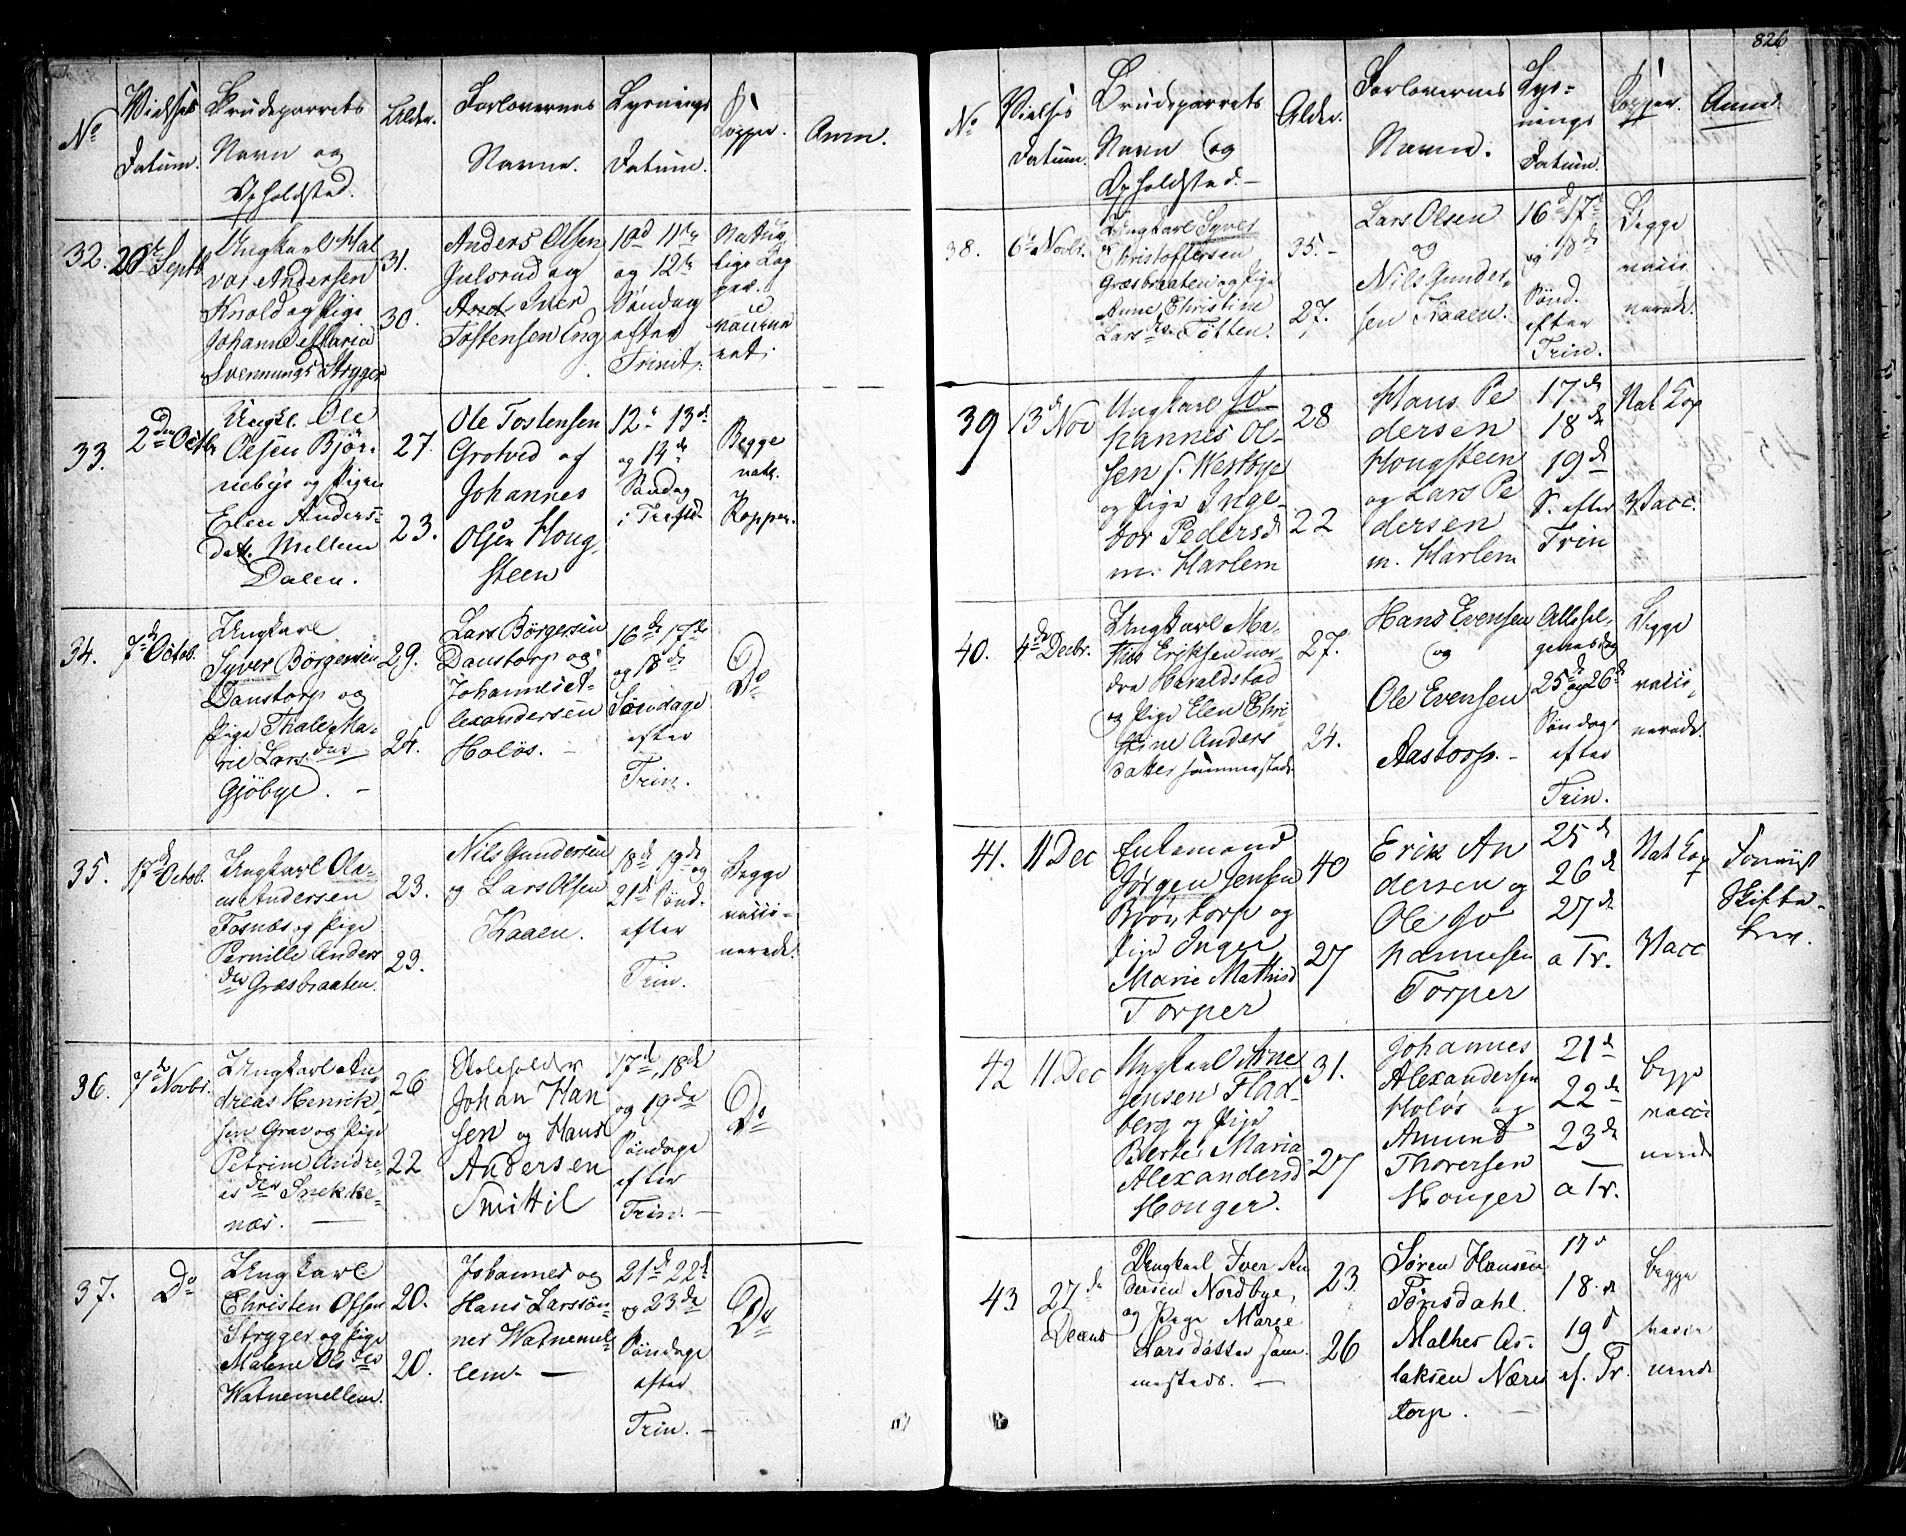 No
Vielses
Datum.
Brudeparrets
Navn og
Opholdsted.
Alder.
Forlovernes
Navne.
Lysnings
Datum.
Kopper.
Anm.
32.
Septb
Ungkarl Hal
vor Andersen
Knold og Pige
Johanne Maria
Svennungsd Stryger
31.
30.
Anders Olsen
Julsrud og
Iver
Tostensen Eng
10d 11te
og 12te
Søndag
efter
Trinit:
Natur
lige Kop
per.
vaccine
ret.
33.
2den Octbr
Ungk. Ole
Olsen Bjør-
nebye og Pigen
Elen Anders-
dat. Mellem
Dalen.
27.
23.
Ole Tostensen
Grotved og
Johannes
Olsen Houg-
steen
12te 13de
og 14de
Søndag
Begge
nat.
Kopper.
34.
7de Octob.
Ungkarl
Syver Børgersen
Danstorp og
Pige Thale Ma-
rie Larsdatr
Gjöbye. -
29.
24.
Lars Börgersen
Danstorp og
Johannes A-
lexandersen
Holös. -
16de 17de
og 18de
Söndage
efter
Trin.
Do
35.
17de Octob.
Ungkarl Ola-
us Andersen
Fosnæs og Pige
Pernille Anders
dtr Græsbraaten.
23.
29.
Nils Gundersen
og Lars Olsen
Kaaen.
18de 19de og
21de Sönd.
efter
Trin.
Begge
vacci-
nerede.
36.
7de Novbr.
Ungkarl An-
dreas Henrik-
sen Grav og Pige
Petrine Andre-
as dtr Snekke-
næs. -
26
22
Johan Han
sen og Hans
Andersen
Smittil
17de, 18de
og 19de
Söndage
efter
Trin. -
Do
37.
Do
Ungkarl
Christen Olsen
Stryger og Pige
Malene Olsdtr
Watnemellem.
20.
20.
Johannes og
Hans Larssön-
ner Watnemel-
lem. -
21de 22de
og 23de
Söndage
efter
Trin. -
Do
826
No
Vielses
Datum.
Brudeparrets
Navn og
Opholdsted. -
Alder.
Forlovernes
Navne.
Lys-
nings
Datum.
Kopper.
Anm.
38.
6te Novbr.
Ungkarl Syver
Christoffersen
Græsbraaten og Pige
Anne Christine
Larsdtr Tötten.
35. -
27.
Lars Olsen
og
Nils Gunder-
sen Kaaen.
16de 17de
og 18de
Sönd.
efter
Trin.
Begge
vacci-
nerede.
39
13de Nov
Ungkarl Jo-
hannes Ol-
sen f. Westbye
og Pige Inge-
bor Pedersd
m. Harlem
28
22
Hans Pe
dersen
Hougsteen
og Lars Pe
dersen
m. Harlem
17de
18de
19de
S. efter
Trin
Nat Kop
Vacc.
40.
4de Decbr.
Ungkarl Ma-
this Eriksen nor-
dre Haraldstad
og Pige Elen Chri-
stine Anders
datter sammesteds.
27.
24.
Hans Evensen
og
Ole Evensen
Aastorp. -
Allehel-
gensdag
25de og 26de
Söndag
efter
Trin.
Begge
vacci-
nerede.
41.
11 Dec
Enkemand
Jørgen Jensen
Brøntorp og
Pige Inger
Marie Mathisd
Torper
40
27
Erik An
dersen og
Ole Jo
hannesen
Torper
25de
26de
27de
a Tr.
Nat Kop
Vacc
Forevist
Skifte-
brev.
42
11 Dec
Ungkarl Arne
Jensen Flad-
berg og Pige
Berte Maria
Alexandersd
Houger.
31.
27
Johannes
Alexandersen
Holös og
Amund
Thoresen
Houger
21de
22de
23de
a Tr.
begge
vacci
nerede
43
27de
Decemb
Ungkarl Iver An
dersen Nordbye,
og Pige Marie
Larsdatter sam-
mesteds. -
23
26
Søren Hansen
Tönsdahl.
Mathes As-
laksen Næris
torp. -
17d
18de
19d
ef. Tr.
begge
vacci
nerede